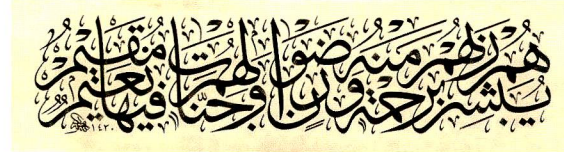 يبشرهم ربهم برحمة منه ورضوان وجنات لهم فيها نعيم مقيم
١٤٣٠